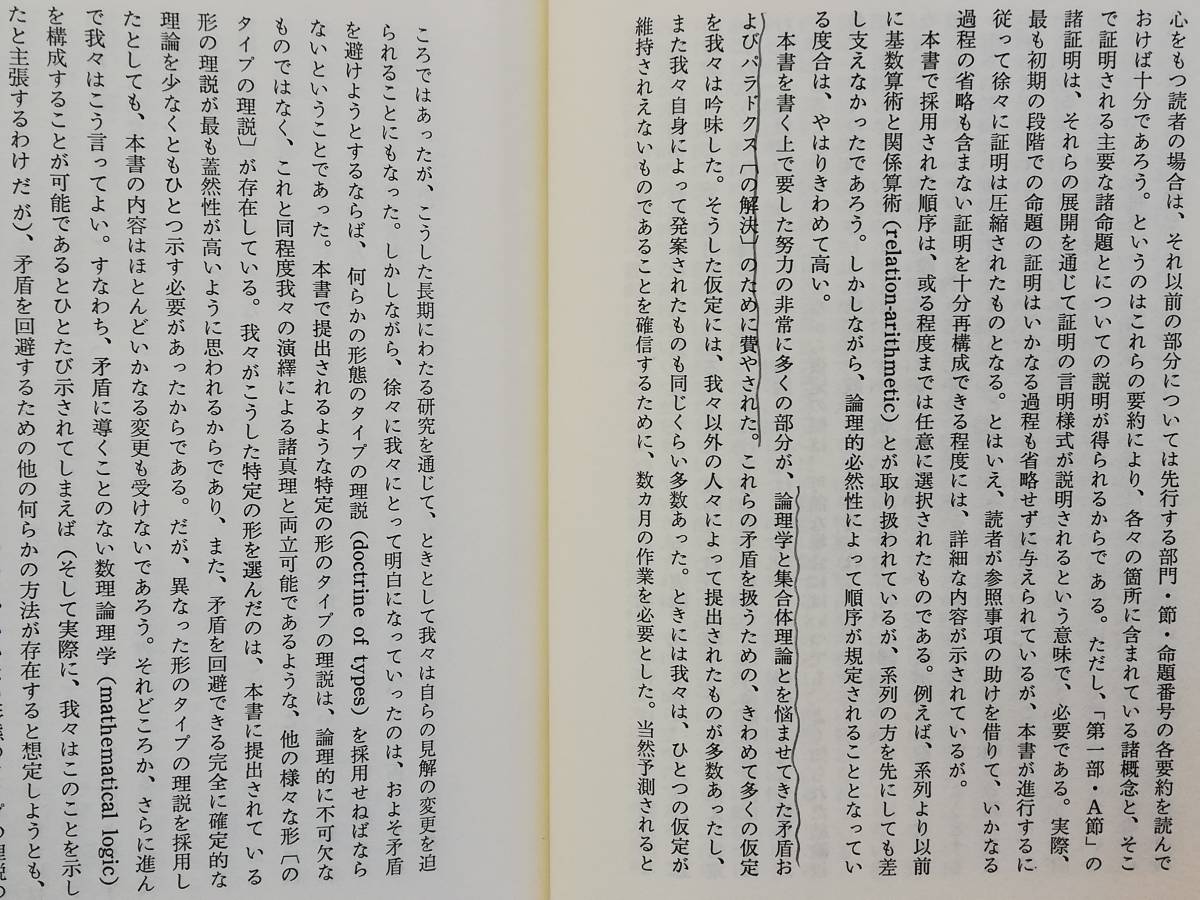 心をもつ読者の場合は、それ以前の部分については先行する部門・節・命題番号の各要約を読んで
おけば十分であろう。というのはこれらの要約により、各々の箇所に含まれている諸概念と、そこ
で証明される主要な諸命題とについての説明が得られるからである。ただし、「第一部・A節」の
諸証明は、それらの展開を通じて証明の言明様式が説明されるという意味で、必要である。実際、
最も初期の段階での命題の証明はいかなる過程も省略せずに与えられているが、本書が進行するに
従って徐々に証明は圧縮されたものとなる。とはいえ、読者が参照事項の助けを借りて、いかなる
過程の省略も含まない証明を十分再構成できる程度には、詳細な内容が示されているが。
本書で採用された順序は、或る程度までは任意に選択されたものである。例えば、系列より以前
に基数算術と関係算術(relation-arithmetic)とが取り扱われているが、系列の方を先にしても差
し支えなかったであろう。しかしながら、論理的必然性によって順序が規定されることとなってい
る度合は、やはりきわめて高い。
本書を書く上で要した努力の非常に多くの部分が、論理学と集合体理論とを悩ませてきた矛盾お
よびパラドクス〔の解決〕のために費やされた。これらの矛盾を扱うための、きわめて多くの仮定
を我々は吟味した。そうした仮定には、我々以外の人々によって提出されたものが多数あったし、
また我々自身によって発案されたものも同じくらい多数あった。ときには我々は、ひとつの仮定が
維持されえないものであることを確信するために、数ヵ月の作業を必要とした。当然予測されると
ころではあったが、こうした長期にわたる研究を通じて、ときとして我々は自らの見解の変更を迫
られることにもなった。しかしながら、徐々に我々にとって明白になっていったのは、およそ矛盾
を避けようとするならば、何らかの形態のタイプの理説(doctrine of types)を採用せねばなら
ないということであった。本書で提出されるような特定の形のタイプの理説は、論理的に不可欠な
ものではなく、これと同程度我々の演繹による諸真理と両立可能であるような、他の様々な形〔の
タイプの理説〕が存在している。我々がこうした特定の形を選んだのは、本書に提出されている
形の理説が最も蓋然性が高いように思われるからであり、また、矛盾を回避できる完全に確定的な
理論を少なくともひとつ示す必要があったからである。だが、異なった形のタイプの理説を採用し
たとしても、本書の内容はほとんどいかなる変更も受けないであろう。それどころか、さらに進ん
で我々はこう言ってよい。すなわち、矛盾に導くことのない数理論理学(mathematical logic)
を構成することが可能であるとひとたび示されてしまえば(そして実際に、我々はこのことを示し
たと主張するわけだが)、矛盾を回避するための他の何らかの方法が存在すると想定しようとも、